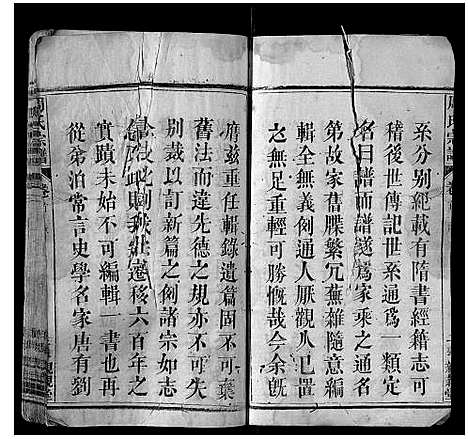 系分別經載有隋書經籍志可
稽後世傳記世系通為一類定
名曰譜而譜遂為家乘之通名
第故家舊牒繁冗蕪雜隨意編
輯全無義例通人厭觀久已置
之無足重輕可勝慨哉今余既
膺茲重任輯錄遺篇固不可棄
舊法而違先德之規亦不可失
別裁以訂新篇之例諸宗如志
遷移六百年之
實蹟未始不可編輯一書也再
從弟泊常言史學名家唐有劉
周氏宗譜
氏宗譜